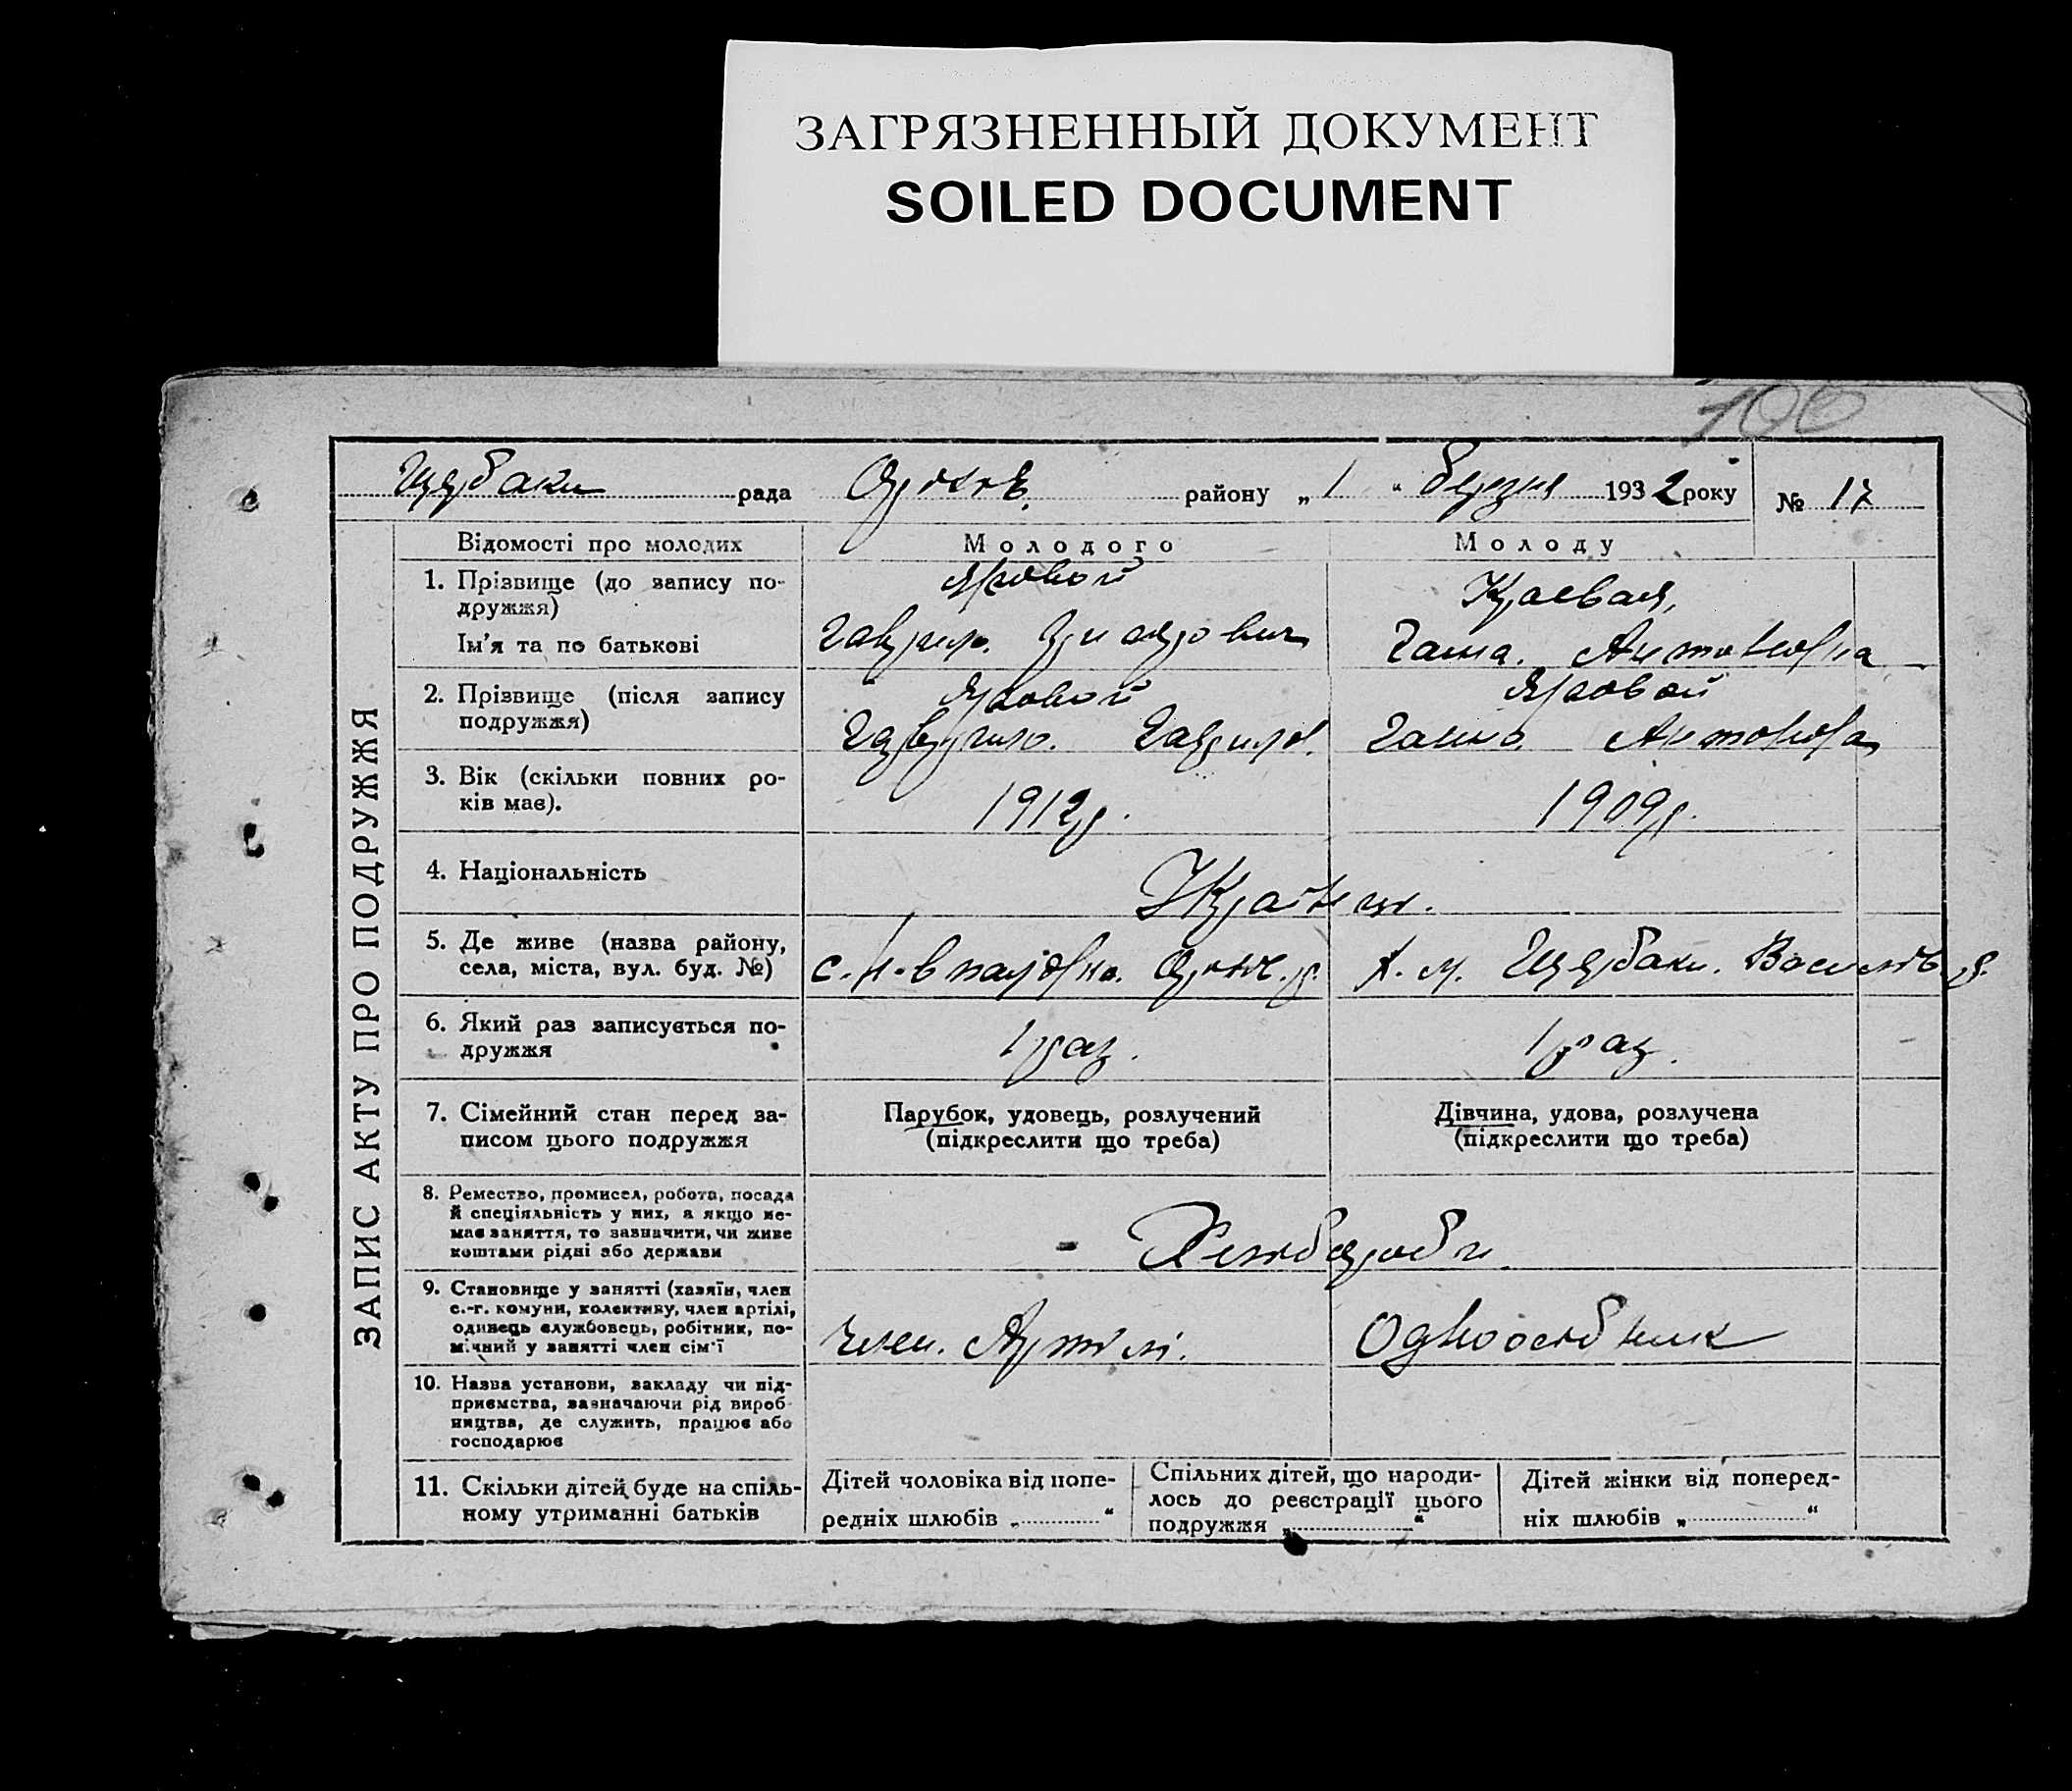 ЗАГРЯЗНЕННЫЙ ДОКУМЕНТ
SOILED DOCUMENT
100
Щербаки рада Оріхів. району „ 1 “ березня 1932 року № 17
ЗАПИС АКТУ ПРО ПОДРУЖЖЯ
Відомості про молодих Молодого Молоду
1. Прізвище (до запису по-
дружжя)
Яровой
Краевая,
Ім'я та по батькові
Гаврило.
Ганна. Антоновна
2. Прізвище (після запису
подружжя)
Яровой
Яровой
Гаврило. Гаврилов.
Ганна Антонова
3. Вік (скільки повних ро-
ків має).
1912р.
1909р.
4. Національність
Україн.
5. Де живе (назва району,
села, міста, вул. буд. №)
с. р.
Щербаки. Василів. р.
6. Який раз записується по-
дружжя
1 раз.
1 раз.
7. Сімейний стан перед за-
писом цього подружжя
Парубок, удовець, розлучений
(підкреслити що треба)
Дівчина, удова, розлучена
(підкреслити що треба)
8. Ремество, промисел, робота, посада
й спеціяльність у них, а якщо не-
має заняття, то зазначити, чи живе
коштами рідні або держави
- Хліборобн.
9. Становище у занятті (хазяїн, член
с.-г. комуни, колективу, член артілі,
одинець службовець, робітник, по-
мічний у занятті член сім'ї
член. Артілі.
Одноосібник
10. Назва установи, закладу чи під-
приємства, зазначаючи рід вироб-
ництва, де служить, працює або
господарює
11. Скільки дітей буде на спіль-
ному утриманні батьків
Дітей чоловіка від попе-
редніх шлюбів „ “
Спільних дітей, що народи-
лось до реєстрації цього
подружжя „ “
Дітей жінки від поперед-
ніх шлюбів „ “